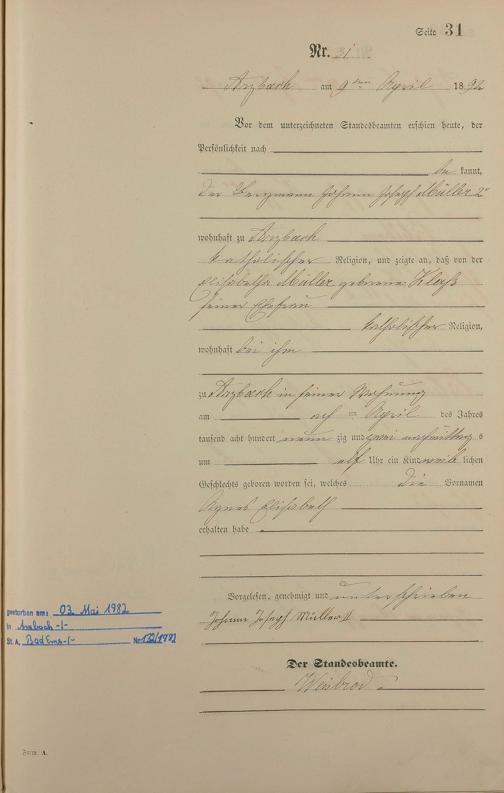 Seite 31
Nr. 31
Arzbach am 9ten April 1892
Vor dem unterzeichneten Standesbeamten erschien heute, der
Persönlichkeit nach
be kannt,
der Bergmann Johann Joseph Müller 2r
wohnhaft zu Arzbach
katholischer Religion, und zeigte an, daß von der
Elisabetha Müller geborene Klaß
seiner Ehefrau
katholischer Religion,
wohnhaft bei ihm
zu Arzbach in seiner Wohnung
am April des Jahres
tausend acht hundert neun zig und zwei nachmittag s
um elf Uhr ein Kind weib lichen
Geschlechts geboren worden sei, welches die Vornamen
Agnes Elisabeth
erhalten habe
Vorgelesen, genehmigt und unterschrieben
Johann Joseph Müller II
Der Standesbeamte.
Weisbrod
gestorben am: 03. Mai 1982
in Arzbach -/-
St. A. Bad Ems -/- Nr. 132/1982
Form. A.